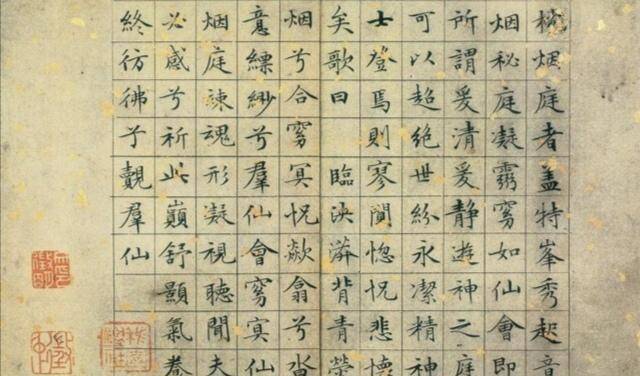 桃烟庭者蓋特峯秀起意
烟秘庭凝霧窈如仙會即
所謂爰清爰静遊神之庭
可以超絶世紛永潔精神
士登焉則寥闃惚怳悲懷
矣歌曰臨泱漭背青熒
烟兮合窈冥怳歘翕兮沓
意縹緲兮羣仙會窈冥仙
烟庭竦魂形凝視聽聞夫
必感兮祈此巔舒顥氣養
終彷彿兮覿羣仙